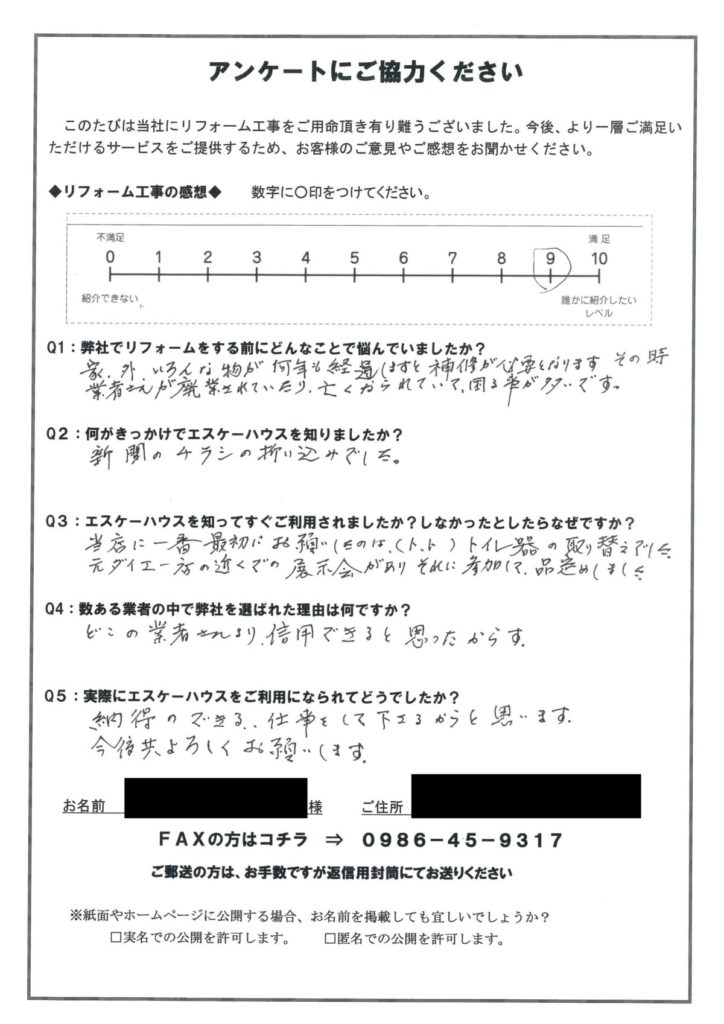 アンケートにご協力ください
このたびは当社にリフォーム工事をご用命頂き有り難うございました。今後、より一層ご満足い
ただけるサービスをご提供するため、お客様のご意見やご感想をお聞かせください。
◆リフォーム工事の感想◆ 数字に〇印をつけてください。
不満足 満足
0 1 2 3 4 5 6 7 8 9 10
紹介できない 誰かに紹介したい
レベル
Q1：弊社でリフォームをする前にどんなことで悩んでいましたか？
家、外 いろんな物が何年も経過しますと補修が必要となります その時
業者さんが廃業されていたり、亡くなられていて、困る事が多いです。
Q2：何がきっかけでエスケーハウスを知りましたか？
新聞のチラシの折り込みでした。
Q3：エスケーハウスを知ってすぐご利用されましたか？しなかったとしたらなぜですか？
当店に一番最初にお願いしたのは、トイレ器の取り替えでした
元ダイエー店の近くでの展示会がありそれに参加して、品定めしました
Q4：数ある業者の中で弊社を選ばれた理由は何ですか？
どこの業者さんより、信用できると思ったからす。
Q5：実際にエスケーハウスをご利用になられてどうでしたか？
納得のできる、仕事をして下さるからと思います。
今後共よろしくお願いします。
お名前 様 ご住所
FAXの方はコチラ ⇒ 0986-45-9317
ご郵送の方は、お手数ですが返信用封筒にてお送りください
※紙面やホームページに公開する場合、お名前を掲載しても宜しいでしょうか？
□実名での公開を許可します。 □匿名での公開を許可します。